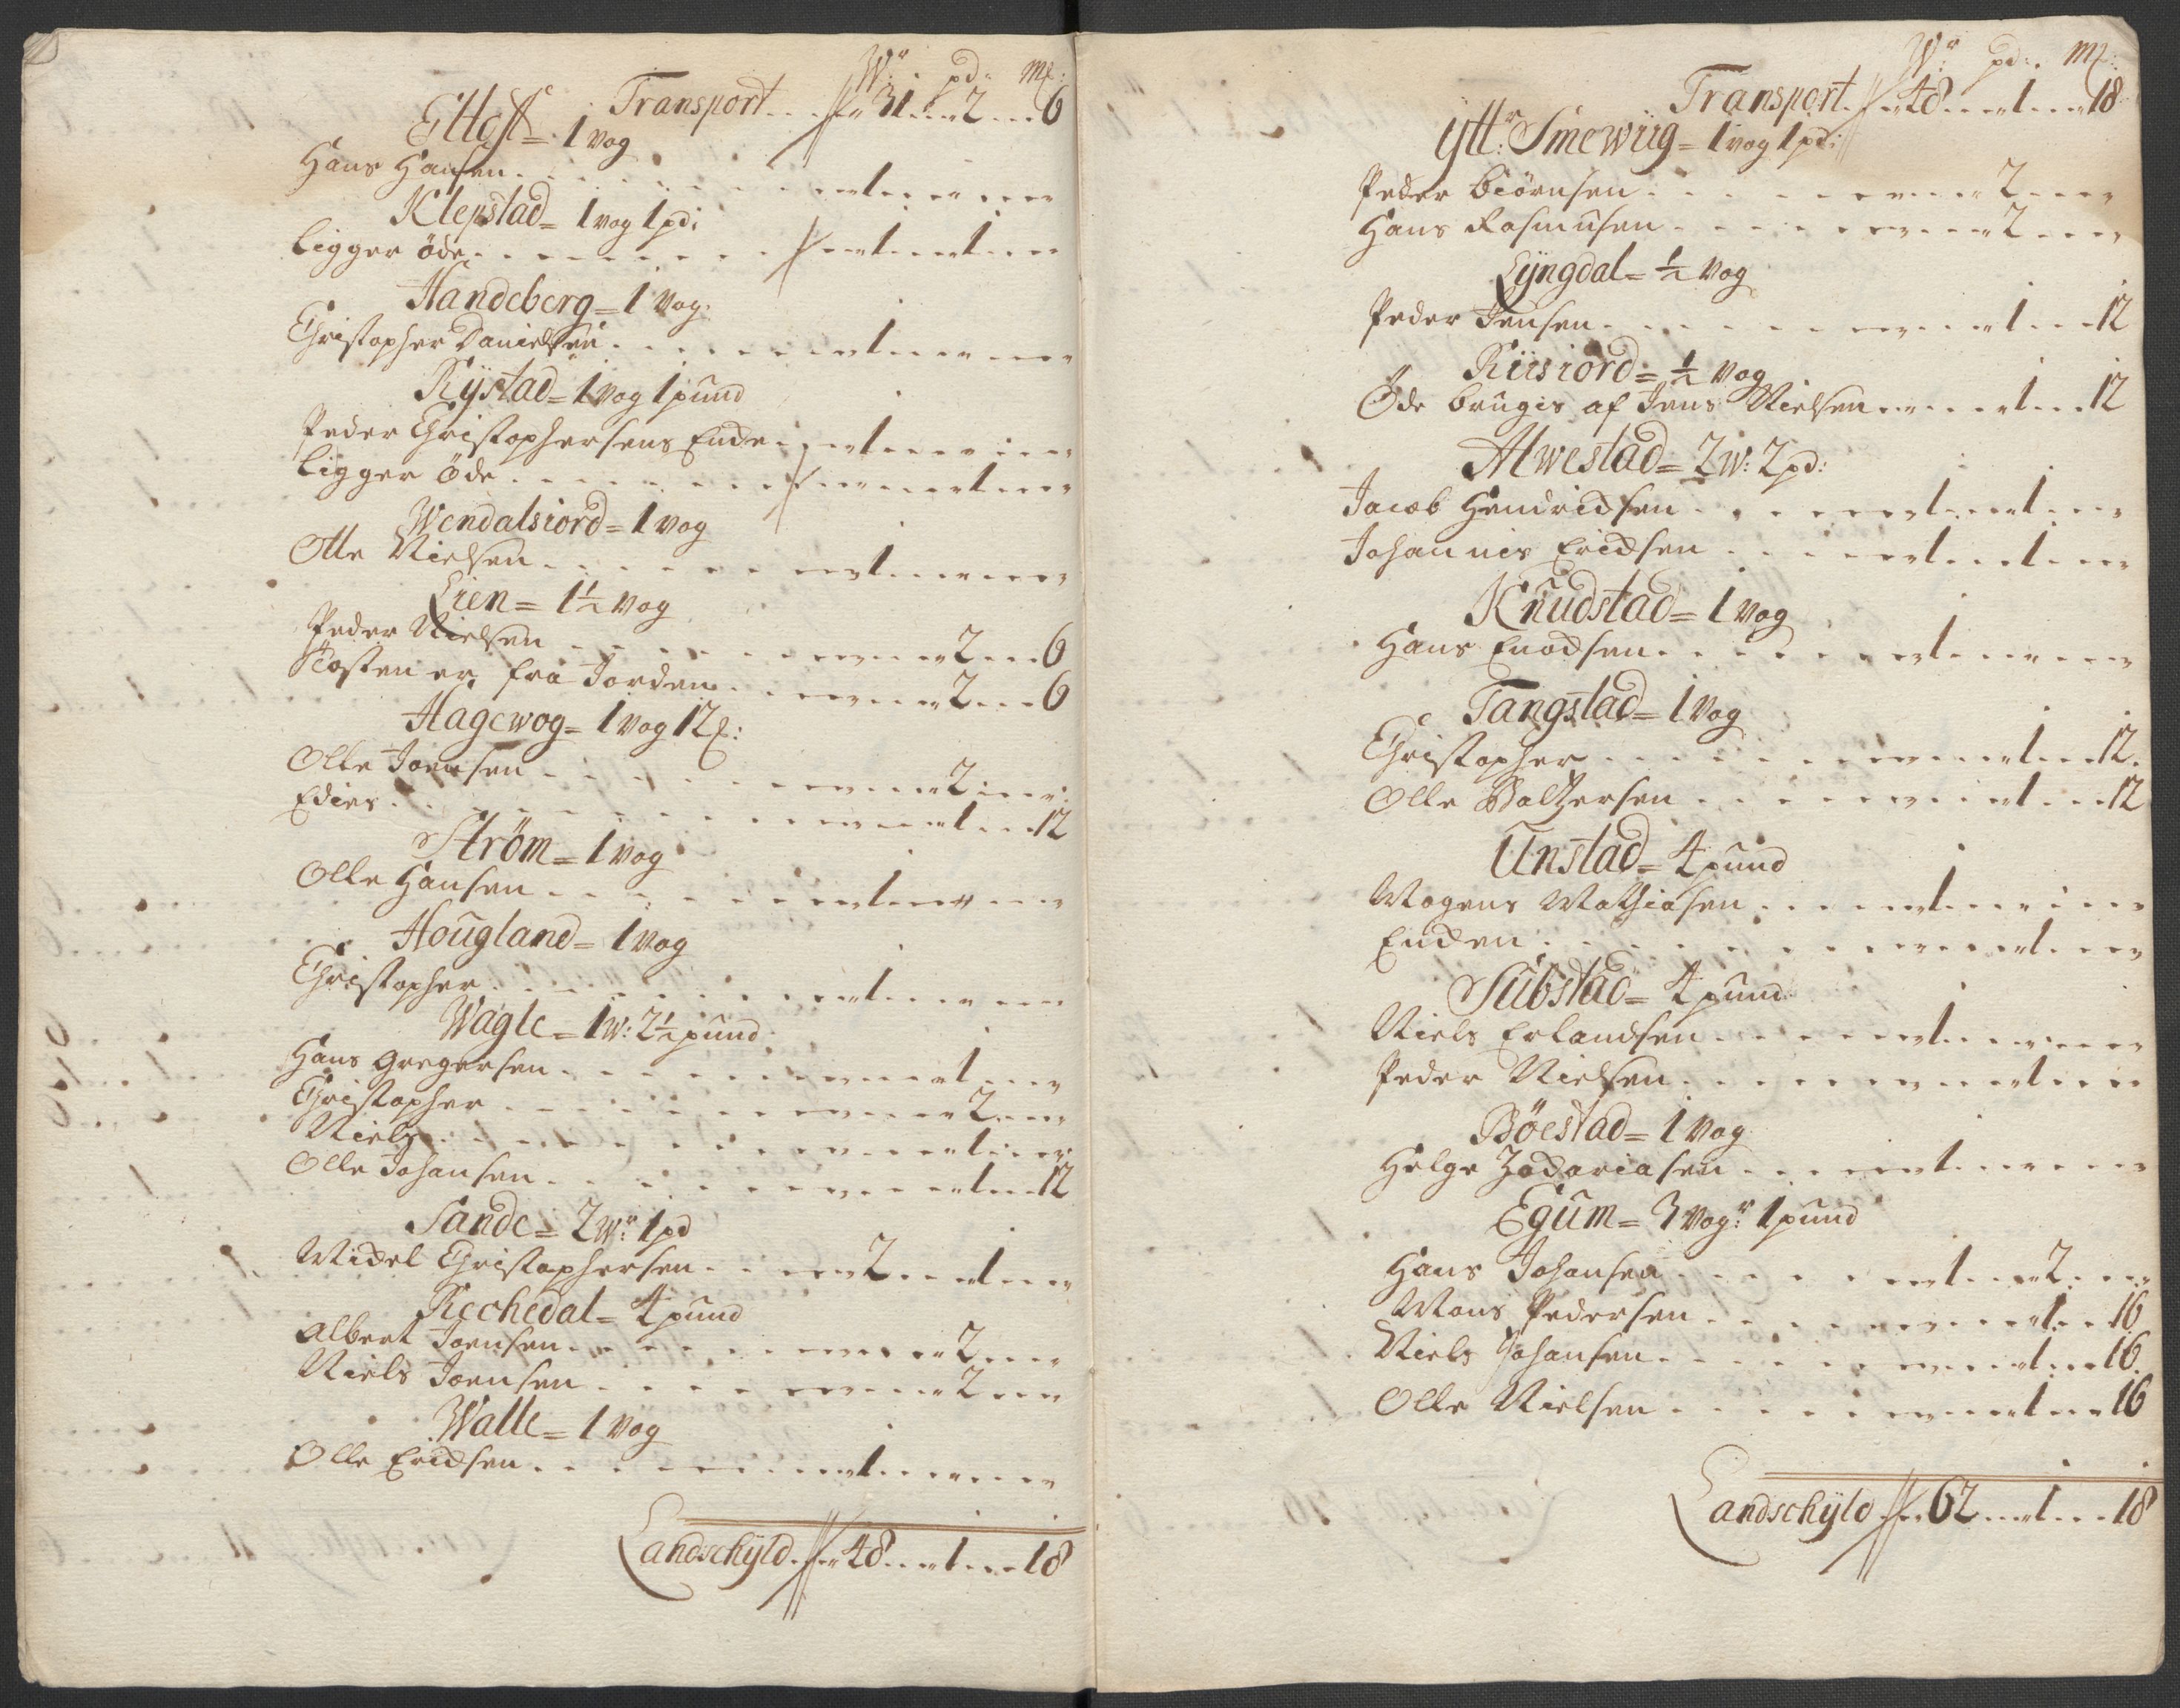 Wr: pd: Mk:
Transport 31 2 6
Ettoft = 1 vog
Hans Hansen 1
Klepstad = 1 vog 1 pd:
Ligger öde 1 1
Handeberg = 1 vog:
Christopher Danielsen 1
Rÿstad = 1 vog 1 pund
Peder Christophersens Encke 1
Ligger öde 1
Wendalsiord = 1 vog
Olle Nielsen 1
Lien = 1½ vog
Peder Nielsen 2 6
Resten er fra Jorden 2 6
Hagewog = 1 vog 12 :
Olle Joensen 2
Edies 1 12
Ström = 1 vog
Olle Hansen 1
Hougland = 1 vog
Christopher 1
Wagle = 1 w: 2½ pund
Hans Gregersen 1
Christopher 2
Niels 1
Olle Johansen 1 12
Sande = 2 wr: 1 pd
Michel Christophersen 2 1
Rechedal = 4 pund
Albert Joensen 2
Niels Joensen 2
Walle = 1 vog
Olle Erichsen 1
Landschÿld 48 1 18
Wr: pd: Mk:
Transport 48 1 18
Ytt: Smewiig = 1 vog 1 pd:
Peder Biörnsen 2
Hans Rasmusen 2
Lÿngdal = ½ vog
Peder Jensen 1 12
Riisiord = ½ vog
Öde brugis af Jens Nielsen 1 12
Alwestad = 2 w: 2 pd:
Jacob Hendrichsen 1 1
Johannis Erichsen 1 1
Knudstad = 1 vog
Hans Enochsen 1
Tangstad = 1 vog
Christopher 1 12
Olle Baltzersen 1 12
Unstad = 4 pund
Mogens Mathiasen 1
Encken 1
Sübstad = 4 pund
Niels Erlandsen 1
Peder Nielsen 1
Böestad = 1 vog
Helge Zachariasen 1
Egum = 3 vogr: 1 pund
Hans Johansen 1 2
Mons Pedersen 1 16
Niels Johansen 1 16
Olle Nielsen 1 16
Landschÿld 62 1 18